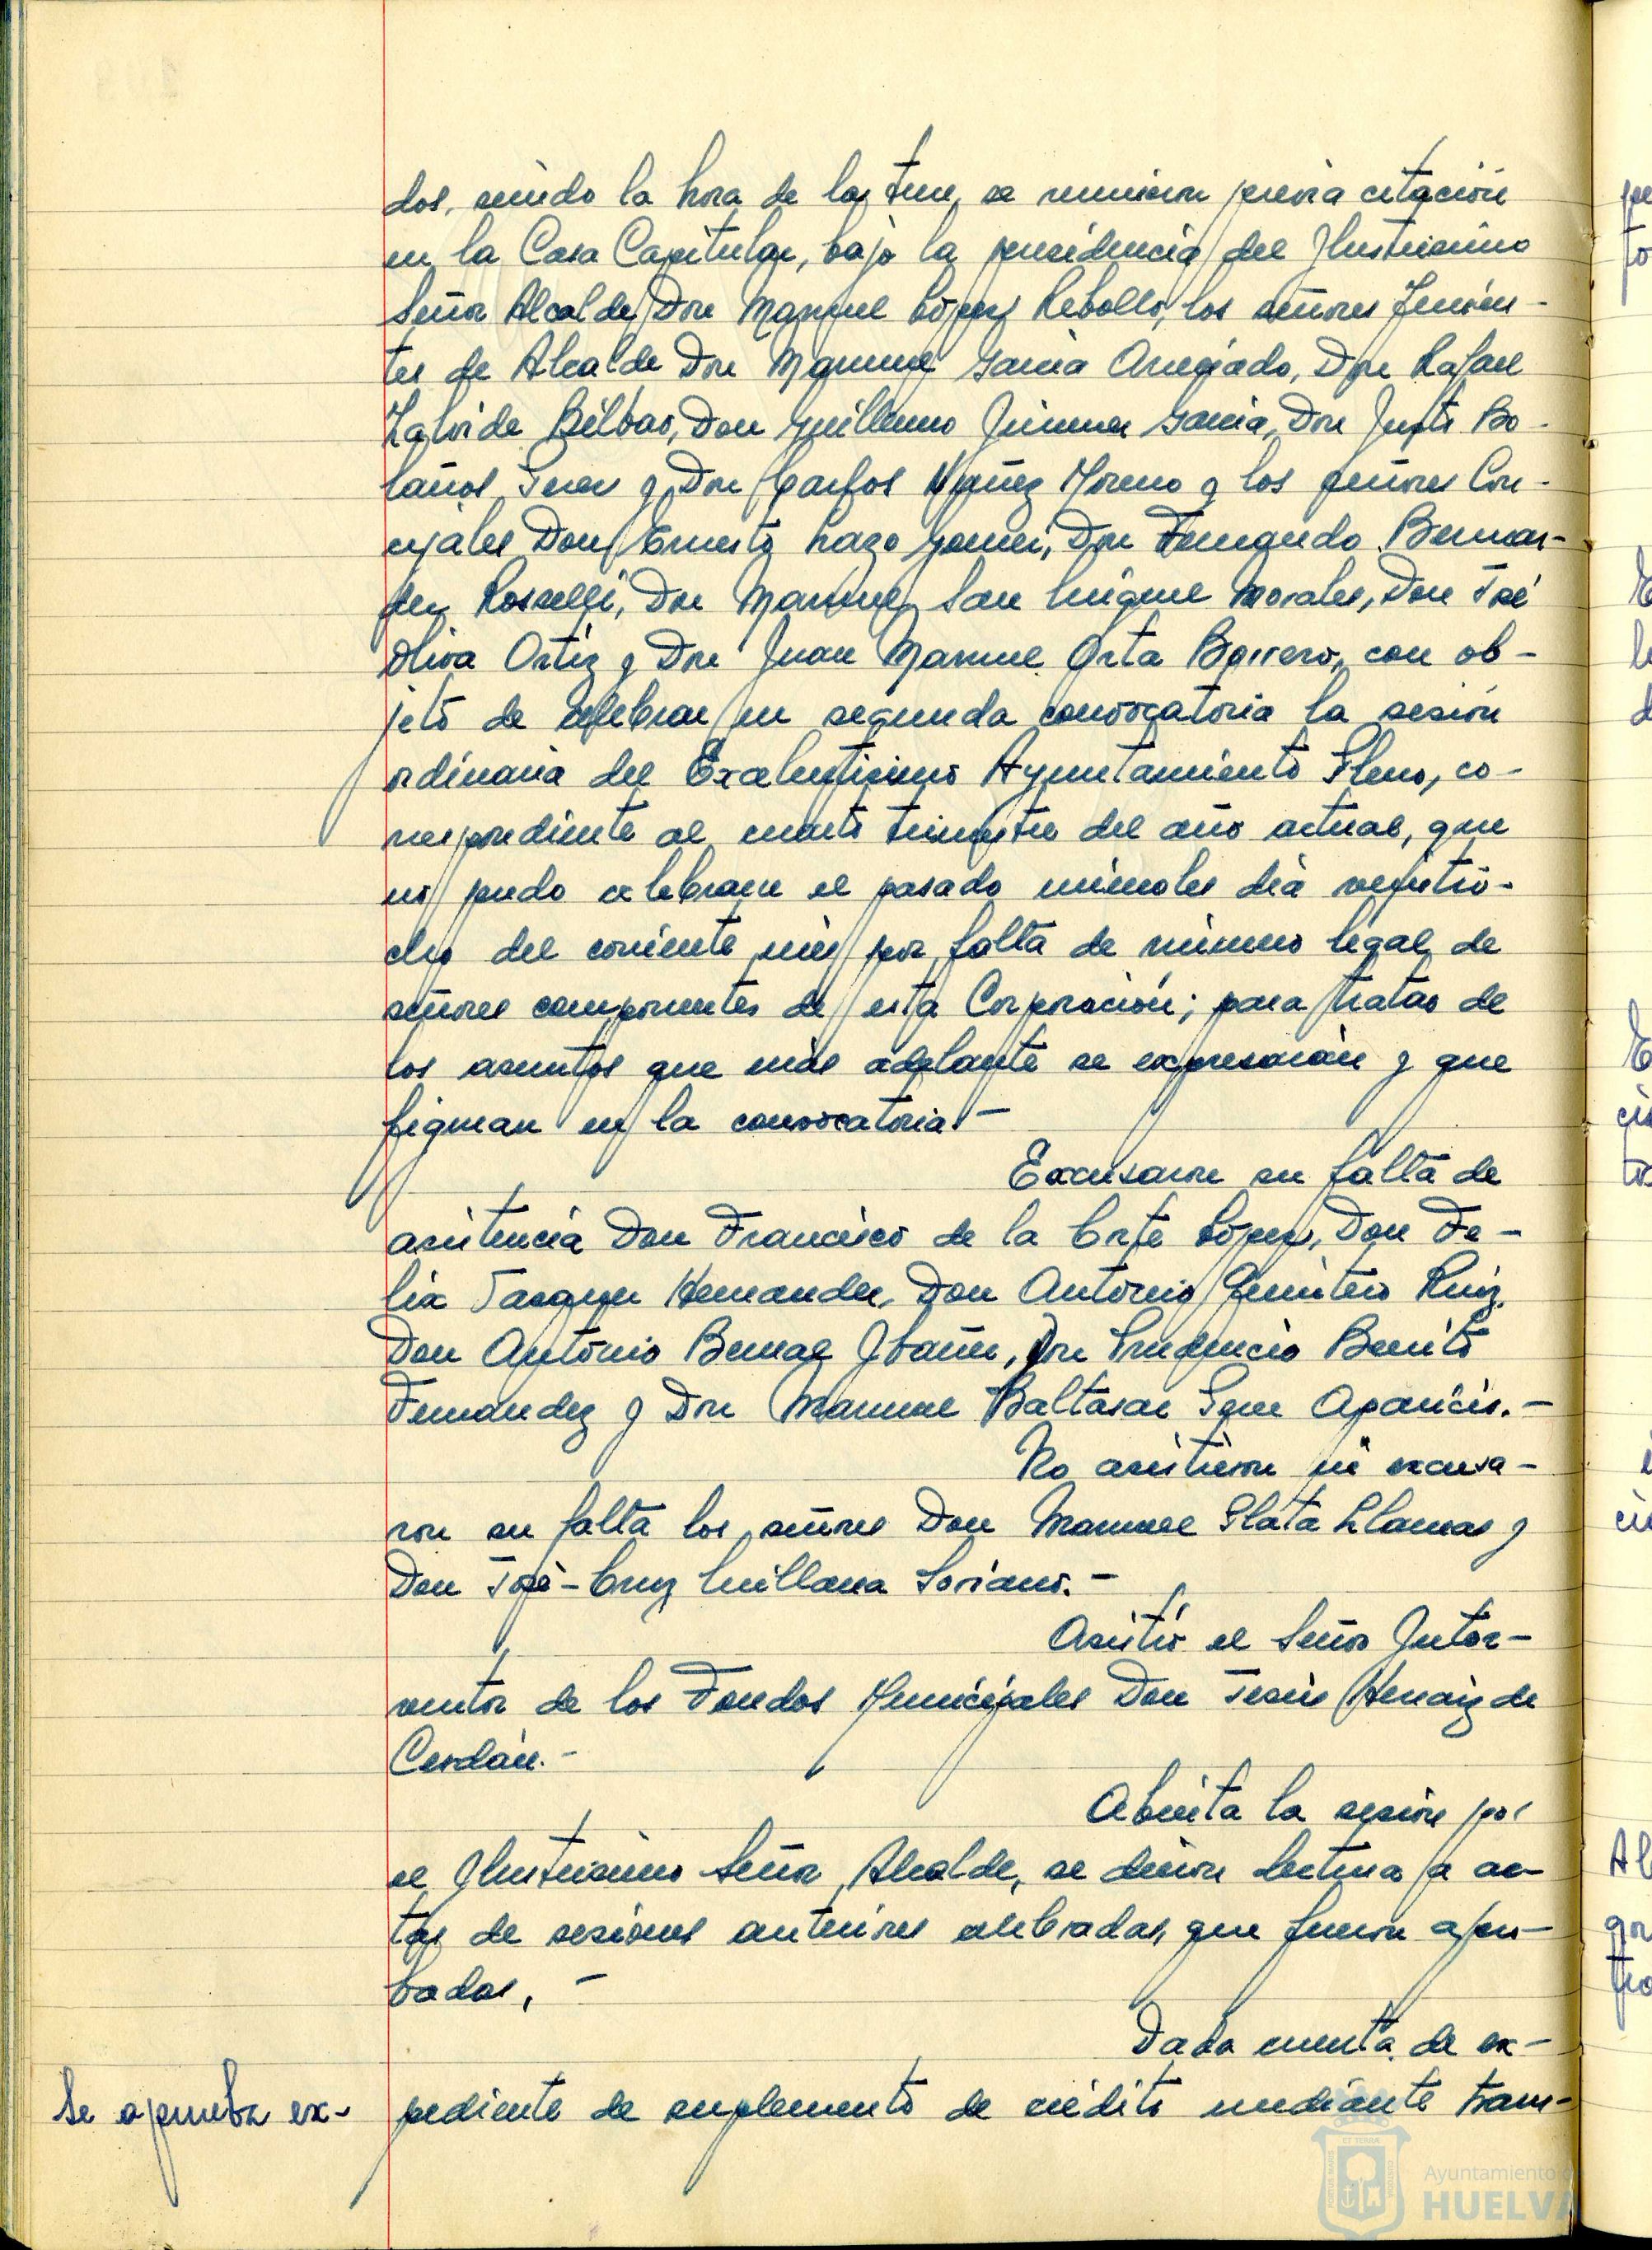 dos, siendo la hora de las trece, se reunieron previa citación
en la Casa Capitular, bajo la presidencia del Ilustrisimo
Señor Alcalde Don Manuel López Rebollo, los señores Tenien-
tes de Alcalde Don Manuel Garcia Arregiado, Don Rafael
Zalvide Bilbao, Don Guillermo Jimenez Garcia, Don Justo Bo-
laños Perez y Don Carlos Nuñez Moreno y los señores Con-
cejales Don Ernesto Lazo Gomez, Don Fernando Bermu-
dez Rosselli, Don Manuel San Miguel Morales, Don José
Oliva Ortiz y Don Juan Manuel Orta Borrero, con ob-
jeto de celebrar en segunda convocatoria la sesión
ordinaria del Excelentisimo Ayuntamiento Pleno, co-
rrespondiente al cuarto trimestre del año actual, que
no pudo celebrarse el pasado miercoles dia veintio-
cho del corriente mes por falta de número legal de
señores componentes de esta Corporación; para tratar de
los asuntos que más adelante se expresarán y que
figuran en la convocatoria.-
Excusaron su falta de
asistencia Don Francisco de la Corte López, Don Fe-
lix Vazquez Hernandez, Don Antonio Quintero Ruiz,
Don Antonio Bernal Ibañez, Don Prudencio Benito
Fernandez y Don Manuel Baltasar Aparicio.-
No asistieron ni excusa-
ron su falta los señores Don Manuel Plata Llamas y
Don José-Cruz Millana Soriano.-
Asistió el Señor Inter-
ventor de los Fondos Municipales Don Jesús Herraiz de
Cerdán.-
Abierta la sesión por
el Ilustrisimo Señor Alcalde, se dieron lectura a ac-
tas de sesiones anteriores celebradas, que fueron apro-
badas.-
Dada cuenta de ex-
Se aprueba ex-
pediente de suplemento de crédito mediante trans-
Ayuntamiento d
HUELVA